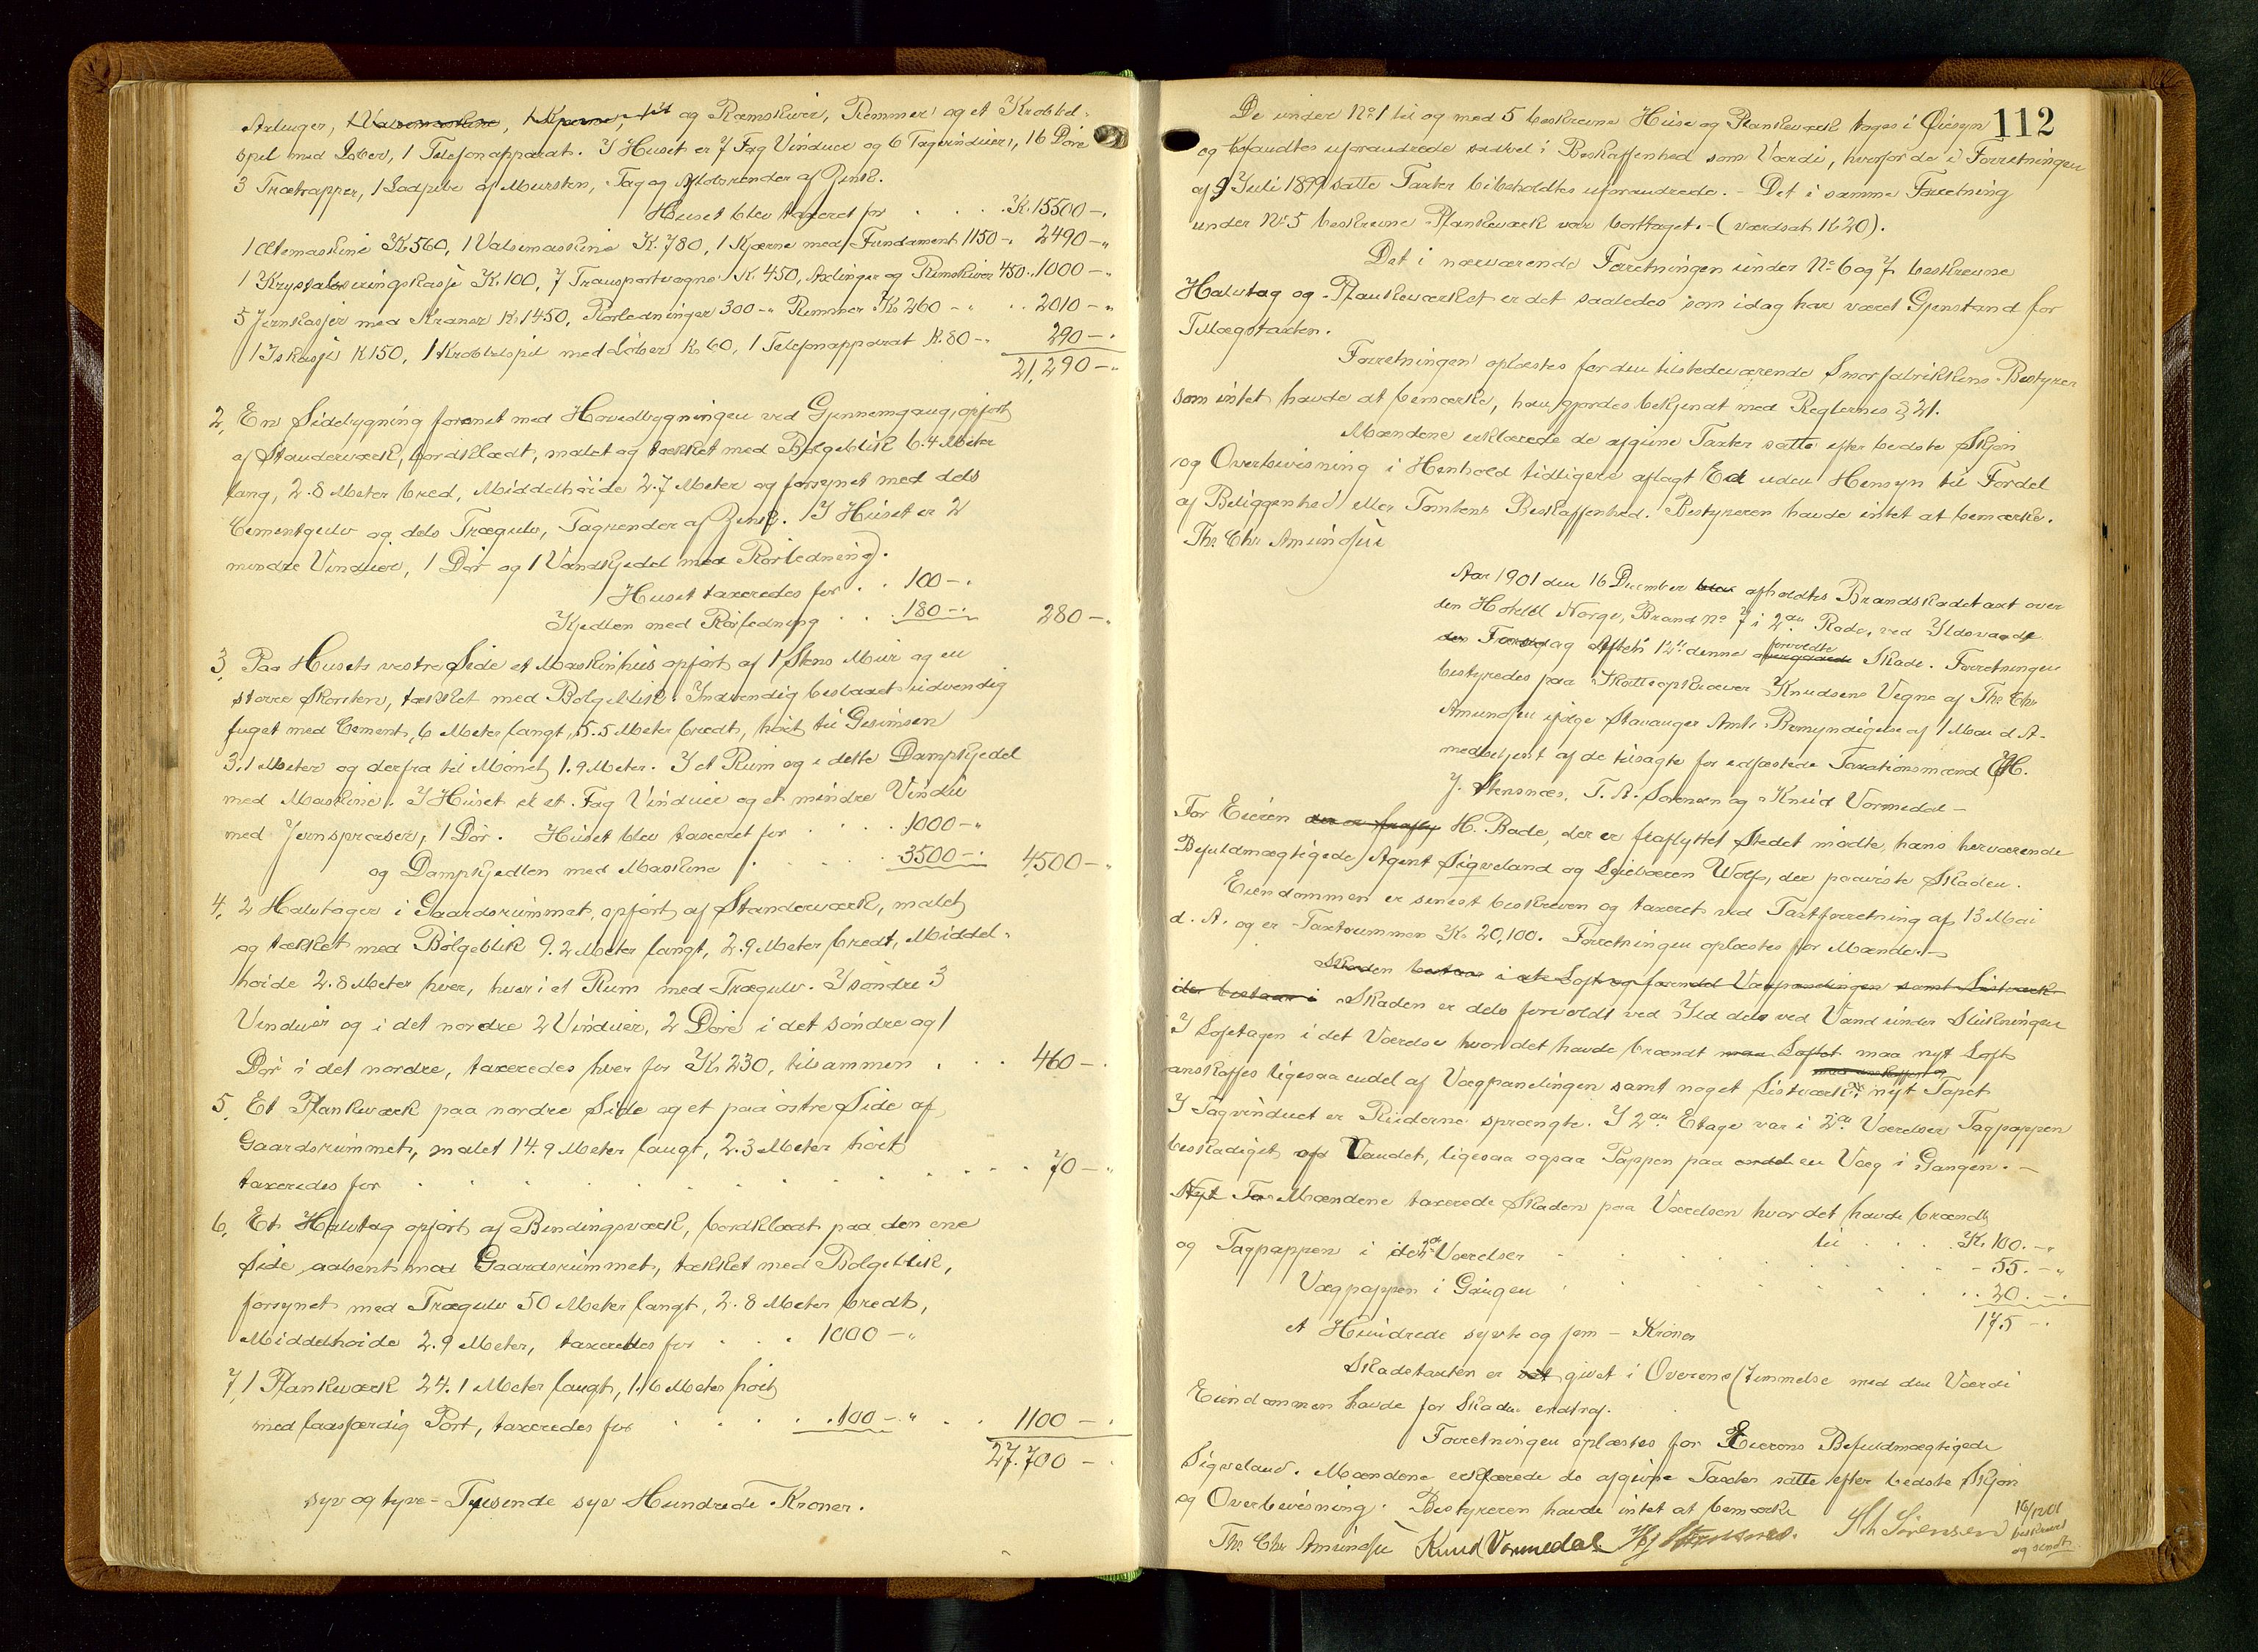 Axlinger, 1 Valsemaskine, 1 Kjærne, og Remskiver, Remmer og et Krabbel-
spil med Løber, 1 Telefonapparat. I Huset er 7 Fag Vinduer og 6 Tagvinduer, 16 Døre
3 Trætrapper, 1 Ladpibe af Mursten, Tag og Afløbsrender af Zink.
Huset blev taxeret for . . . . K. 15500 -.
1 Æltemaskine K. 560, 1 Valsemaskine K. 780, 1 Kjærne med Fundament 1150 -. 2490 -"
1 Krystaliseringskasse K. 100, 7 Transportvogne K. 450, Axlinger og Remskiver 450. 1000 -"
5 Jernkasser med Kraner K. 1450, Rørledninger 300 -" Remmer K. 260 -" . . 2010 -"
1 Iskasse K 150, 1 Krabbelspil med Løber K. 60, 1 Telefonapparat K. 80 -" 290 -.
21,290 -"
2, En Sidebygning forenet med Hovedbygningen ved Gjennemgang, opført
af Standerværk, bordklædt, malet og tækket med Bølgeblik 6.4 Meter
lang, 2.8 Meter bred, Middelhøide 2.7 Meter og forsynet med dels
Cementgulv og dels Trægulv, Tagrender af Zink. I Huset er 2
mindre Vinduer, 1 Dør og 1 Vandkjedel med Rørledning.
Huset taxeredes for . . 100 -.
Kjedlen med Rørledning . . . 180 -. 280 -.
3, Paa Husets vestre Side et Maskinhus opført af 1 Stens Mur og en
større Skorsten, tækket med Bølgeblik. Indvendig beslaaet udvendig
fuget med Cement, 6 Meter langt, 5.5 Meter bredt, høit til Gesimsen
3.1 Meter og derfra til Mønet 1.9 Meter. I et Rum og i dette Dampkjedel
med Maskine. I Huset er et Fag Vinduer og et mindre Vindu
med Jernsprosser, 1 Dør. Huset blev taxeret for . . . . 1000 -"
og Dampkjedlen med Maskine . . . . . 3500 -. 4500 -"
4, 2 Halvtager i Gaardsrummet, opført af Standerværk, malet
og tækket med Bølgeblik 9.2 Meter langt, 2.9 Meter bredt, Middel-
høide 2.8 Meter hver, hver i et Rum med Trægulv. I søndre 3
Vinduer og i det nordre 2 Vinduer, 2 Døre i det søndre og 1
Dør i det nordre, taxeredes hver for K. 230, tilsammen . . . 460 -.
5, Et Plankeværk paa nordre Side og et paa østre Side af
Gaardsrummet, malet 14.9 Meter langt, 2.3 Meter høit
taxeredes for . . . . . . . . . . . 70 -"
6, Et Halvtag opført af Bindingsværk, bordklædt paa den ene
Side, aabent mod Gaardsrummet, tækket med Bølgeblik,
forsynet med Trægulv 50 Meter langt, 2.8 Meter bredt,
Middelhøide 2.9 Meter, taxeredes for . . . 1000 -"
7, 1 Plankeværk 24.1 Meter langt, 1.6 Meter høit
med laasfærdig Port, taxeredes for . . . . 100 -" . . 1100 -.
27.700 -.
syv og tyve - Tusende syv Hundrede Kroner.
112
De under No 1 til og med 5 beskrevne Huse og Plankeværk toges i Øiesyn
og befandtes uforandrede saavel i Beskaffenhed som Værdi, hvorfor de i Forretningen
af 9 Juli 1899 satte Taxter bibeholdtes uforandrede. - Det i samme Forretning
under No 5 beskrevne Plankeværk var borttaget. - (værdsat K 20).
Det i nærværende Forretningen under No 6 og 7 beskrevne
Halvtag og Plankeværket er det saaledes som idag har været Gjenstand for
Tillægstaxten.
Forretningen oplæstes for den tilstedeværende Smørfabrikkens Bestyrer
som intet havde at bemærke, han gjordes bekjendt med Reglernes § 21.
Mændene erklærede de afgivne Taxter satte efter bedste Skjøn
og Overbevisning i Henhold tidligere aflagt Ed uden Hensyn til Fordel
af Beliggenhed eller Tomtens Beskaffenhed. Bestyreren havde intet at bemærke.
Ths. Chr Amundsen
Aar 1901 den 16 December blev afholdtes Brandskadetaxt over
den Hotell Norge, Brand No 7 i 2den Rode, ved Ildsvaade
den Torsdag Aften 12te denne overgaaede forvoldte Skade. Forretningen
bestyredes paa Skatteopkræver Knudsens Vegne af Ths. Chr
Amundsen ifølge Stavanger Amts Bemyndigelse af 1 Mai d. A.
medbetjent af de tilsagte for edfæstede Taxationsmænd H.
J. Stensnæs, T. A. Sørensen og Knud Vormedal -
For Eieren der er frafly H. Bade, der er fraflyttet Stedet mødte hans herværende
Befuldmægtigede Agent Sigveland og Leieboeren Wolf, der paaviste Skaden.
Eiendommen er senest beskreven og taxeret ved Taxtforretning af 13 Mai
d. A. og er Taxtsummen K. 20,100. Forretningen oplæstes for Mændene. -
Skaden bestaar i at Loft og forendel Vægpanelingen samt Listværk
der bestaar i Skaden er dels forvoldt ved Ild dels ved Vand under Slukningen
I Loftetagen i det Værelse hvor det havde brændt maa Loftet maa nyt Loft
anskaffes ligesaa endel af Vægpanelingen samt noget Listværk maa anskaffes og nyt Tapet
I Tagvinduet er Ruderne sprængte. I 2den Etage var i 2de Værelser Tagpappen
beskadiget af Vandet, ligesaa ogsaa Pappen paa endel en Væg i Gangen. -
Nyt Ta Mændene taxerede Skaden paa Værelsen hvor det havde brændt
til . . . . K. 100. -"
og Tagpappen i de 2de Værelser . . . . . . - 55. -"
Vægpappen i Gangen . . . . . . . 20. -.
175 -.
et Hundrede sytti og fem - Kroner
Skadetaxten er sat givet i Overensstemmelse med den Værdi
Eiendommen havde før Skaden indtraf.
Forretningen oplæstes for Eierens Befuldmægtigede
Sigveland. Mændene erklærede de afgivne Taxter satte efter bedste Skjøn
og Overbevisning. Bestyreren havde intet at bemærke
Ths. Chr Amundsen Knud Vormedal HJ Stensnæs. Th Sørensen
16/12 01
beskrevet
og sendt.